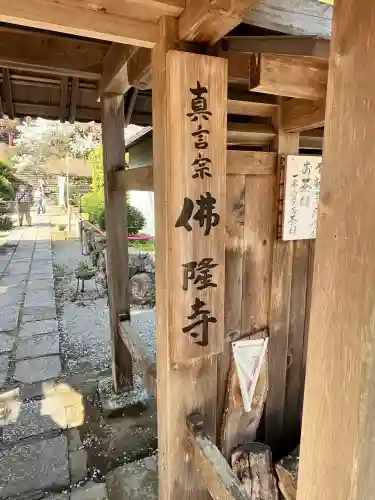 真言宗
佛隆寺